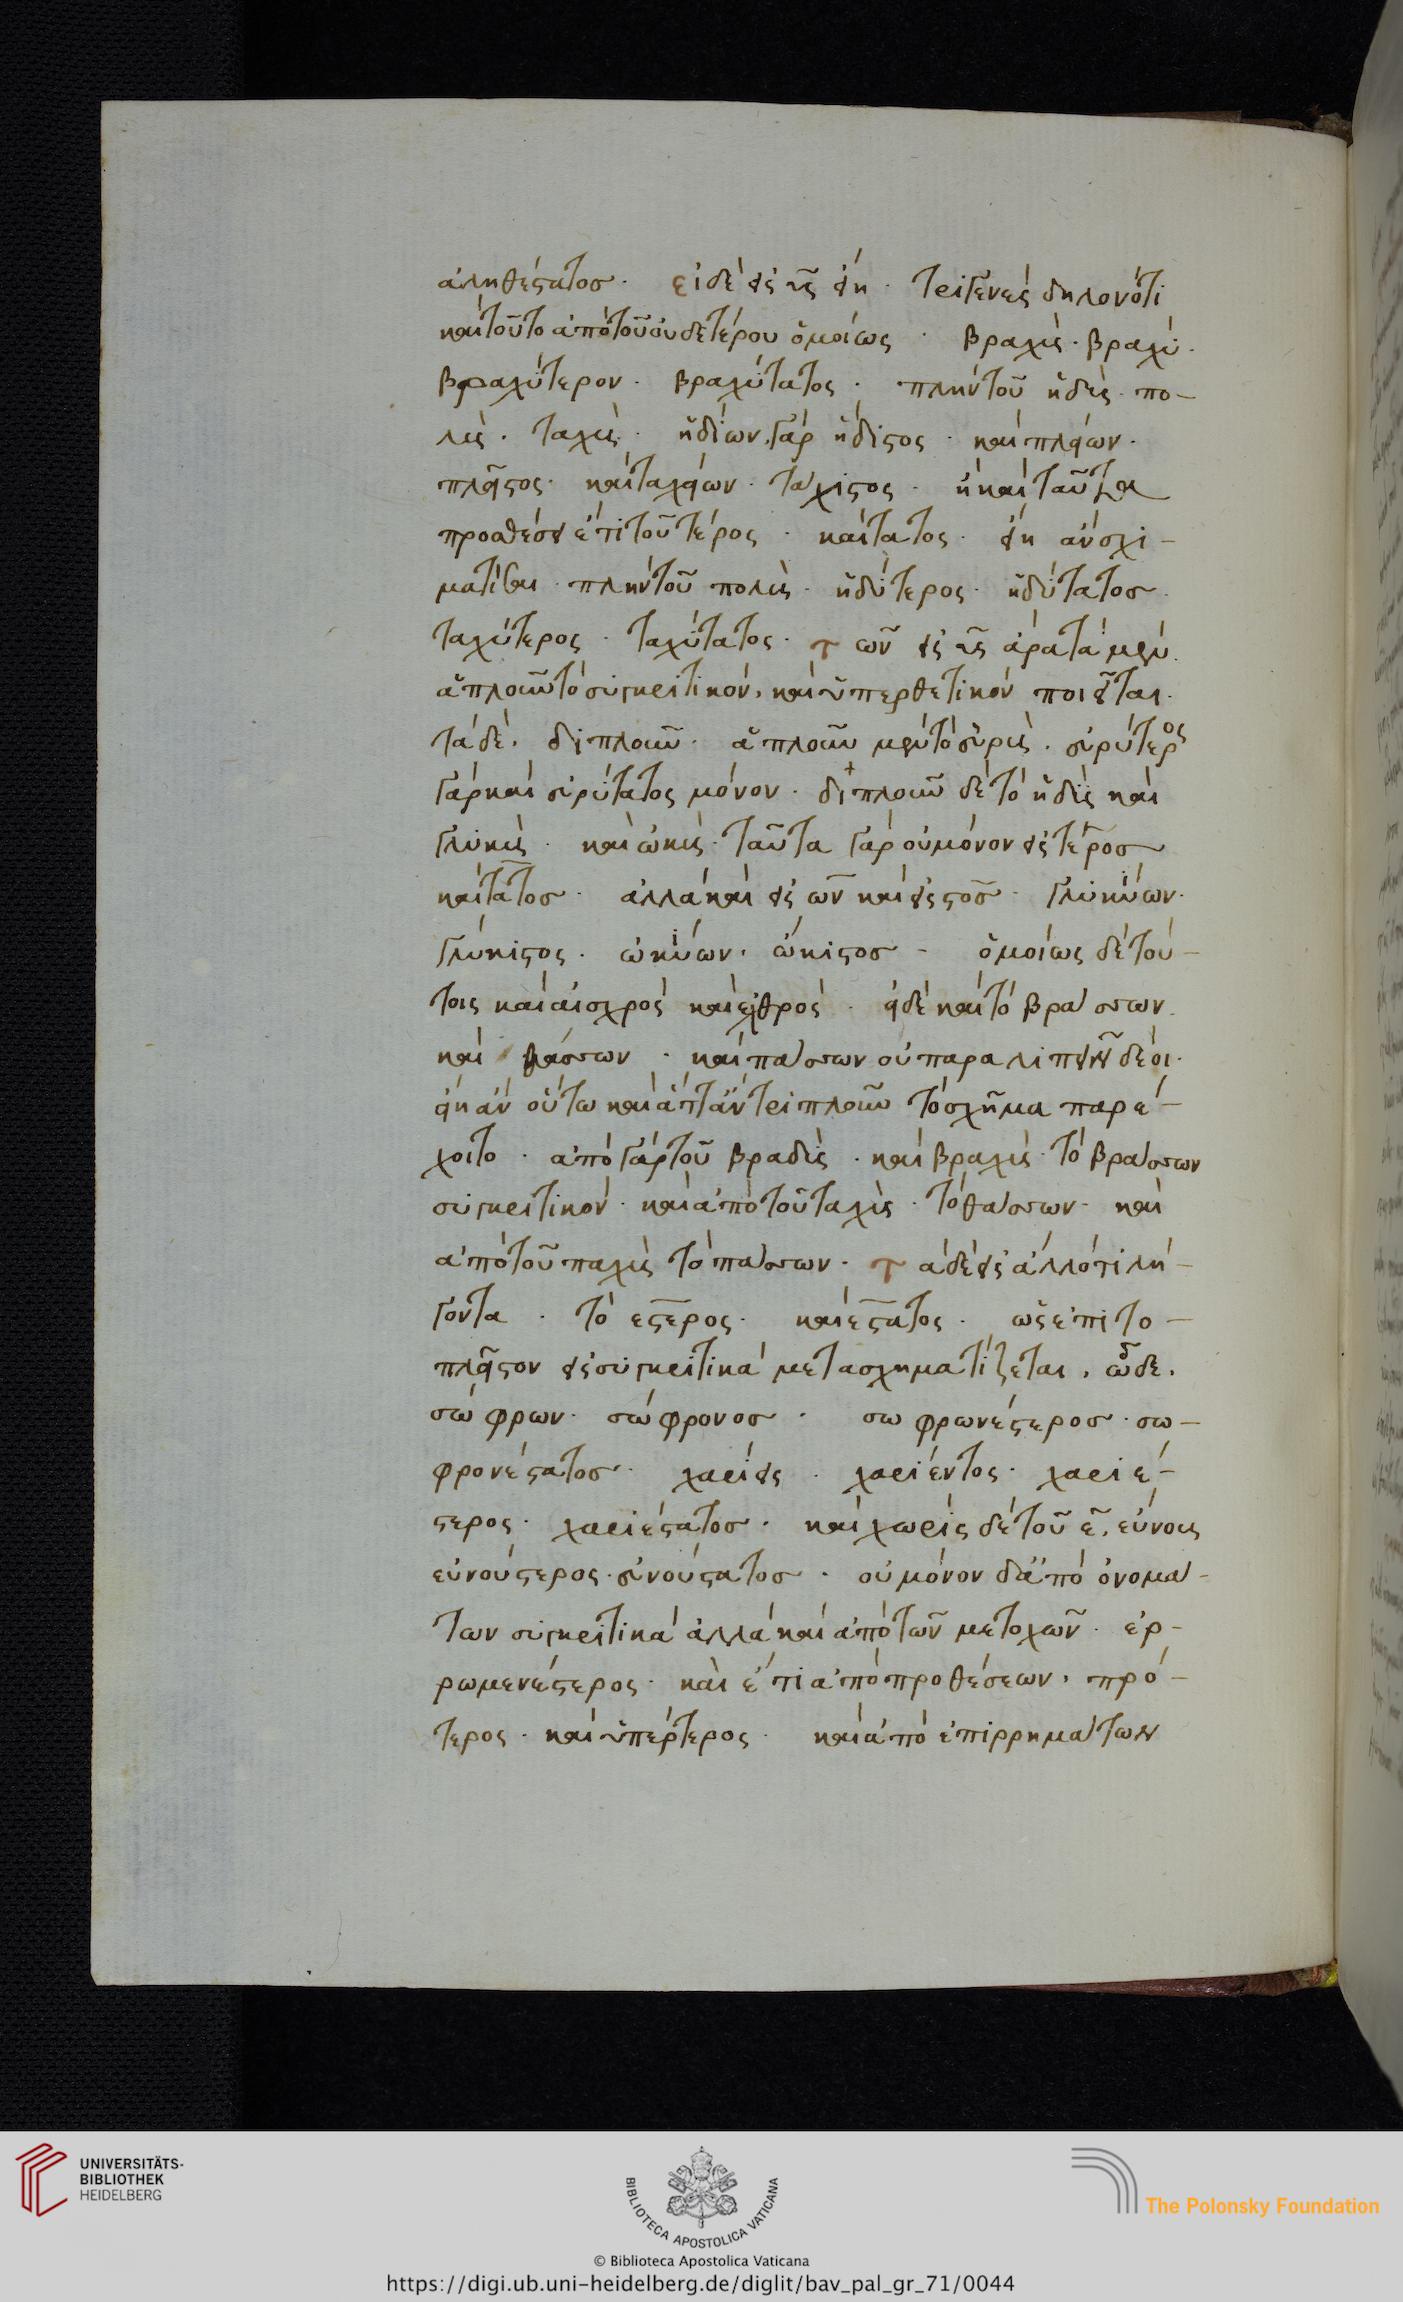 ἀληθέστατος· εἰ δὲ εἰς υς εἴη· τριγενὲς δηλονότι
καὶ τοῦτο ἀπὸ τοῦ οὐδετέρου ὁμοίως · βραχὺς· βραχύ·
βραχύτερον· βραχύτατος· πλὴν τοῦ ἡδὺς· πο-
λὺς· ταχὺς· ἡδίων γὰρ ἥδιστος· καὶ πλείων·
πλεῖστος· καὶ ταχείων· τάχιστος· ἢ καὶ ταῦτα
προαθέσει ἐπὶ τοῦ τέρος· καὶ τατος· εἴη ἂν σχι-
ματίσαι πλὴν τοῦ πολὺς· ἡδύτερος· ἡδύτατος·
ταχύτερος· ταχύτατος· τῶν εἰς υς ἄρα τὰ μὲν
ἁπλοῦν τὸ συγκριτικὸν, καὶ ὑπερθετικὸν ποιεῖται·
τὰ δὲ, διπλοῦν· ἁπλοῦν μὲν τὸ εὐρὺς· εὐρύτερος
γὰρ καὶ εὐρύτατος μόνον· διπλοῦν δὲ τὸ ἡδὺς καὶ
γλυκὺς· καὶ ὠκὺς· ταῦτα γὰρ οὐ μόνον εἰς τερος
καὶ τατος· ἀλλὰ καὶ εἰς ων καὶ εἰς στος· γλυκύων·
γλύκιστος· ὠκύων, ὤκιστος - ὁμοίως δὲ τού-
τοις καὶ αἰσχρὸς καὶ ἐχθρὸς· εἰ δὲ καὶ τὸ βράσσων
καὶ θάσσων· καὶ πάσσων οὐ παραλιπεῖν δέοι·
εἴη ἂν οὕτω καὶ ἅπταν τριπλοῦν τὸ σχῆμα παρέ-
χοιτο· ἀπὸ γὰρ τοῦ βραδὺς· καὶ βραχὺς τὸ βράσσων
συγκριτικόν· καὶ ἀπὸ τοῦ ταχὺς· τὸ θάσσων· καὶ
ἀπὸ τοῦ παχὺς τὸ πάσσων· τὰ δὲ εἰς ἄλλό τι λή-
γοντα· τὸ εστερος· καὶ εστατος· ὡς ἐπὶ το-
πλεῖστον εἰς συγκριτικὰ μετασχηματίζεται, ὧδε,
σώφρων· σώφρονος· σωφρωνέστερος· σω-
φρονέστατος· χαρίεις· χαρίεντος· χαριέ-
στερος· χαριέστατος· καὶ χωρὶς δὲ τοῦ ε, εὔνους
εὐνούστερος· εὐνούστατος· οὐ μόνον δ' ἀπὸ ὀνομά-
των συγκριτικὰ ἀλλὰ καὶ ἀπὸ τῶν μετοχῶν· ἐρ-
ρωμενέστερος· καὶ ἔτι ἀπὸ προθέσεων, πρό-
τερος· καὶ ὑπέρτερος· καὶ ἀπὸ ἐπιρρημάτων
UNIVERSITÄTS-
BIBLIOTHEK
HEIDELBERG
BIBLIOTECA APOSTOLICA VATICANA
The Polonsky Foundation
© Biblioteca Apostolica Vaticana
https://digi.ub.uni-heidelberg.de/diglit/bav_pal_gr_71/0044